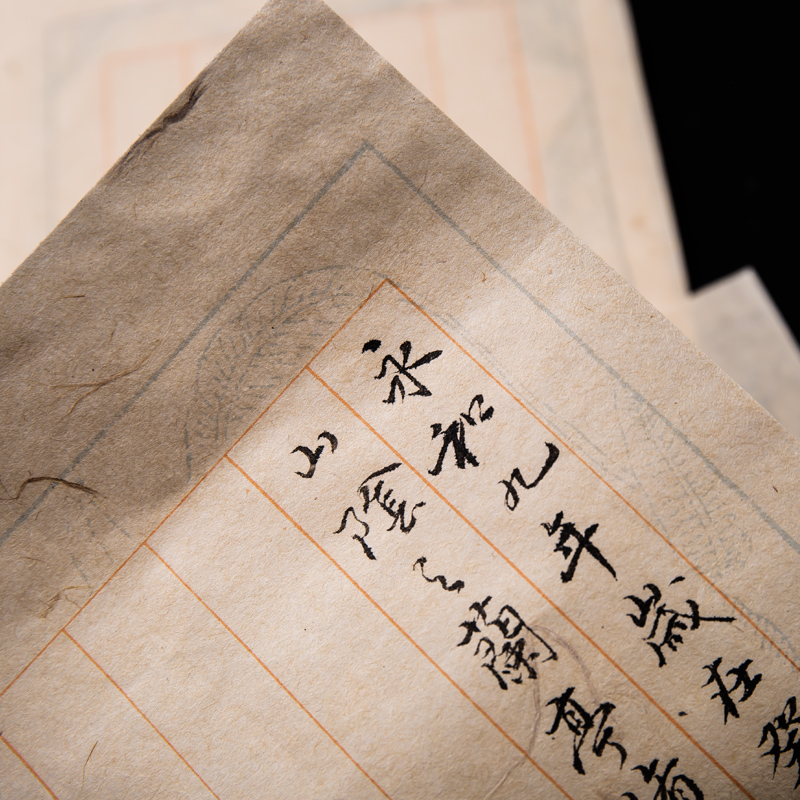 永和九年歲在癸
山陰之蘭亭脩